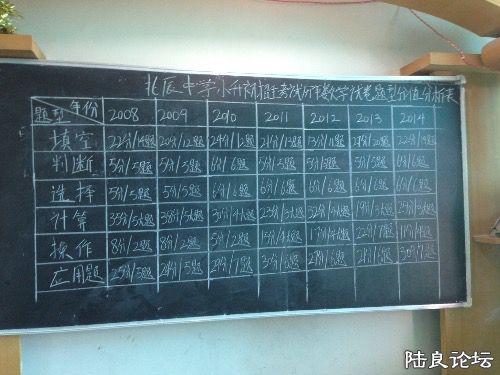 北辰中学小升初招生考试历年数学试卷题型分值分析表
题型 年份 2008 2009 2010 2011 2012 2013 2014
填空 22分/14题 20分/12题 24分/12题 21分/13题 13分/11题 21分/20题 22分/14题
判断 5分/5题 5分/5题 6分/6题 5分/5题 5分/5题 5分/5题 6分/6题
选择 5分/5题 5分/5题 6分/6题 6分/6题 6分/6题 6分/6题 6分/6题
计算 35分/5大题 38分/5大题 30分/4大题 23分/3大题 32分/3大题 19分/3大题 25分/3大题
操作 8分/2题 8分/2题 5分/2题 15分/4大题 17分/4大题 22分/7题 11分/4题
应用题 25分/5题 24分/5题 29分/7题 30分/6题 27分/6题 27分/6题 30分/7题
陆良论坛